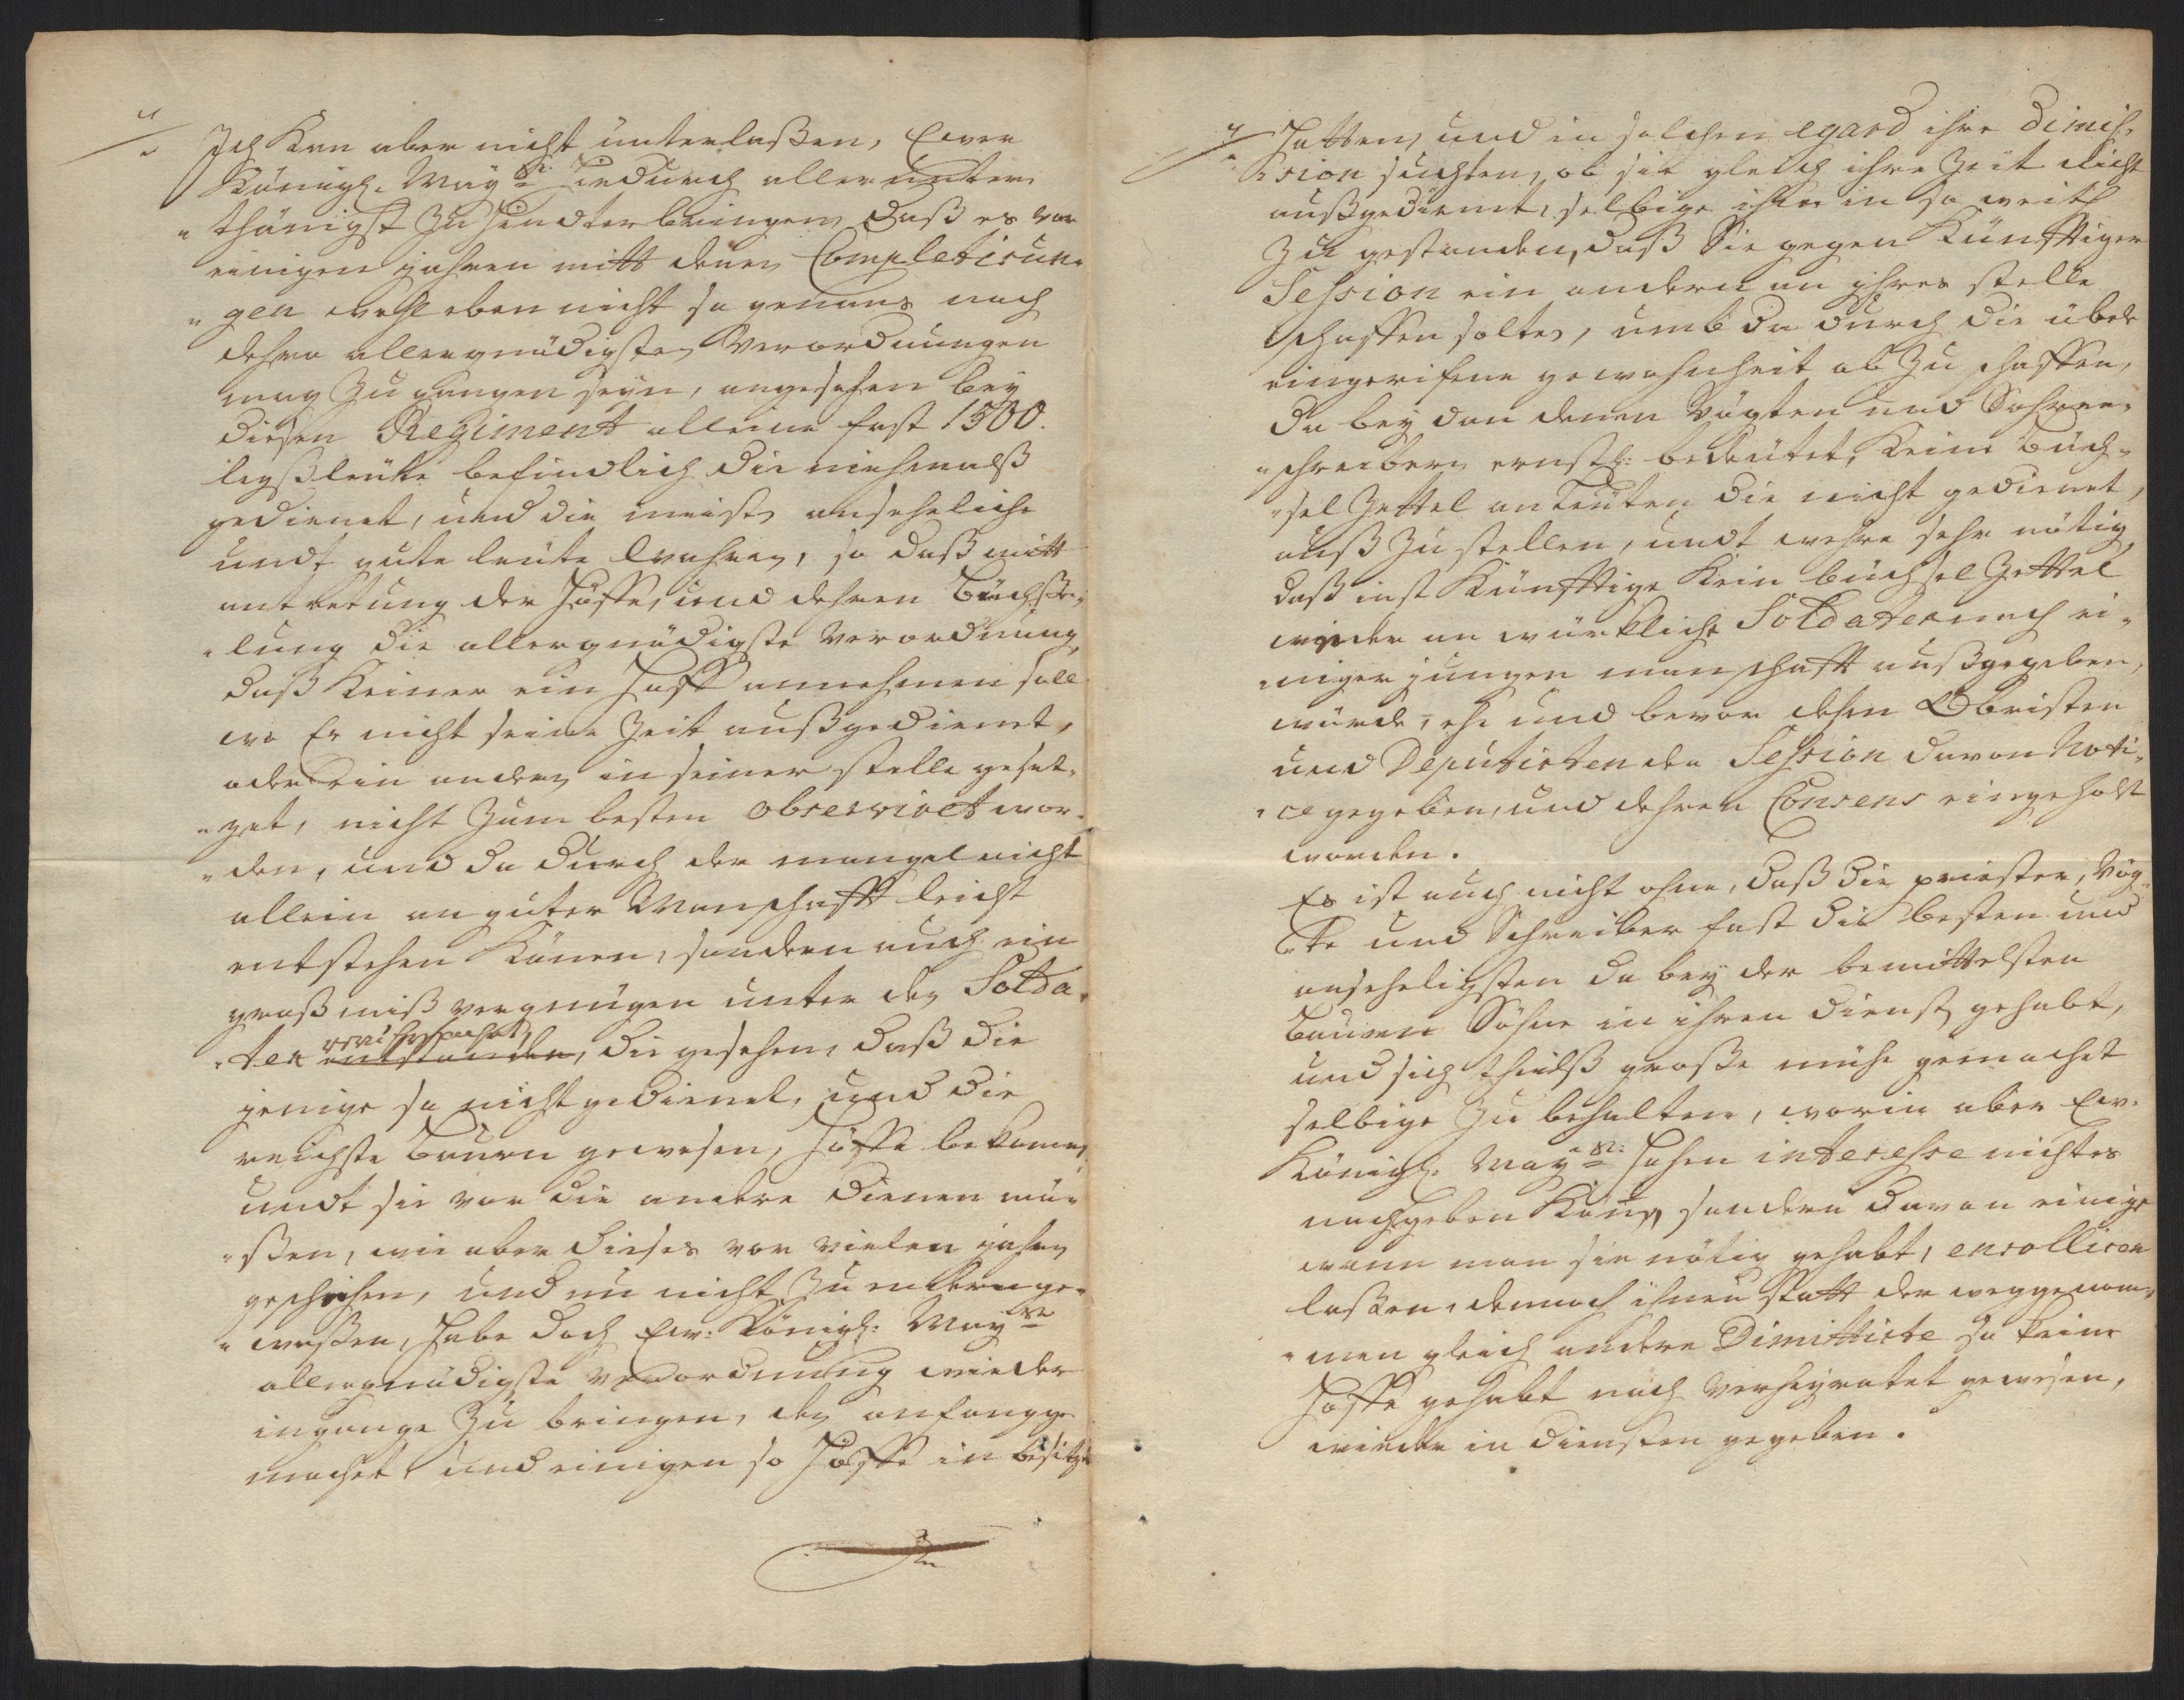 Ich kan aber nicht unterlaßen, Ewer
Königl. May:tt hiedurch allerunter¬
„thänigst zu hindterbringen, daß es vor
einigen jahren mitt denen Completirun¬
„gen wohl eben nicht so genaus nach
dehro allergnädigsten Verordnungen
mag zugangen seyn, angesehen bey
diesen Regiment alleine fast 1500.
legßleute befindlich die niehmalß
gedienet, und die meisten ansehnliche
undt gute leute wahren, so daß mitt
antretung der Höffe, und dehren
„lung die allergnädigste Verordnung,
daß keiner ein Hoff annehmen soll
wo Er nicht seine Zeit außgedienet,
oder ein andern in seiner stelle geset¬
„zet, nicht zum besten observiret wor¬
„den, und da durch der mangel nicht
allein an guter Manschafft leicht
entstehen können, sondern auch ein
groß mißvergnügen unter den Solda¬
„ten verursachet, die gesehen, daß die
jenige so nicht gedienet, und die
reichste Bauren gewesen, Höffe bekomen,
undt sie vor die andere dienen mü¬
„ßen, wie aber dieses vor vielen jahren
geschehen, und nu nicht zu endern ge¬
„weßen, habe doch Ew: Königl: May:tt
allergnädigste verordnung wieder
ingange zu bringen, den anfang ge¬
machet und einigen so Höffe in besitz
hatten, und in solchen egard ihre dimis¬
„sion suchten, ob sie gleich ihre Zeit nicht
außgedienet, selbige ihnen in so weit
zu gestanden, daß Sie gegen künfftiger
Session ein andern an ihres stelle
schaffen solten, umb da durch die übel
eingerißene gewohnheit ab zu schaffen,
da bey dan denen Vögten und Sohren¬
„schreibern ernstl: bedeutet, keine Büch¬
„sel Zettel an Leuten die nicht gedienet,
auß zu stellen, undt wehre sehr nötig,
daß inst künfftige kein büchsel Zettel
weder an würkliche Soldaten noch ei¬
„niger jungen manschafft außgegeben,
würde, ehe und bevor dehm Obristen
und Deputirten der Session davon Noti¬
„ce gegeben, und dehren Consens eingeholt
worden.
Es ist auch nicht ohne, daß die priester, Vög¬
„te und Schreiber fast die besten und
ansehnligsten da bey der bemittelsten
Bauren Söhne in ihren dienst gehabt,
und sich theilß große mühe gemachet
selbige zu behalten, worin aber Ew.
Königl: May:tt hohen interesse nichtes
nachgeben können, sondern davon einige
wenn man sie nötig gehabt, enrolliren
laßen, dennoch ihnen statt der weggenom¬
„men gleich andere Dimittirte so keine
Höffe gehabt noch verheyratet gewesen,
wieder in diensten gegeben.